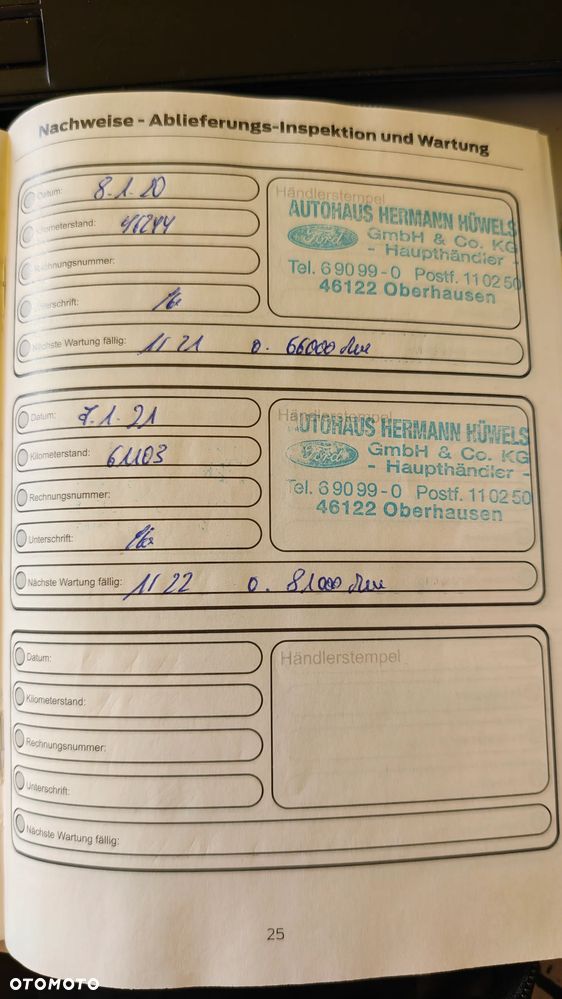 Nachweise - Ablieferungs-Inspektion und Wartung
Datum: 8.1.20
Kilometerstand: 46244
Rechnungsnummer:
Unterschrift:
Nächste Wartung fällig: 1/21 o. 66000
Händlerstempel
AUTOHAUS HERMANN HÜWELS
Ford
GmbH & Co. KG
- Haupthändler -
Tel. 6 90 99 - 0 Postf. 11 02 50
46122 Oberhausen
Datum: 7.1.21
Kilometerstand: 61103
Rechnungsnummer:
Unterschrift:
Nächste Wartung fällig: 1/22 o. 81000
Händlerstempel
AUTOHAUS HERMANN HÜWELS
Ford
GmbH & Co. KG
- Haupthändler -
Tel. 6 90 99 - 0 Postf. 11 02 50
46122 Oberhausen
Datum:
Kilometerstand:
Rechnungsnummer:
Unterschrift:
Nächste Wartung fällig:
Händlerstempel
25
OTOMOTO